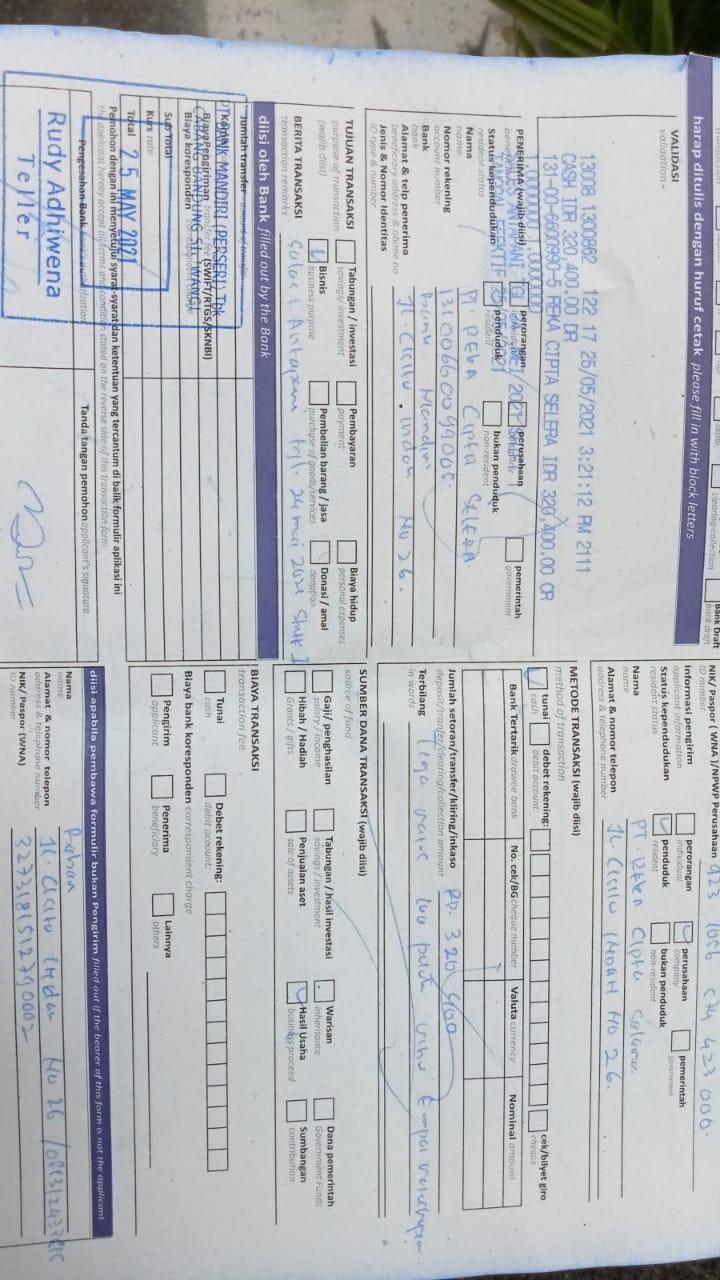 harap ditulis dengan huruf cetak please fill in with block letters
Bank Draft
bank draft
clearing-collection
VALIDASI
validation
13008 1300862 122 17 25/05/2021 3:21:12 PM 2111
CASH IDR 320,400.00 DR
131-00-6600990-5 REKA CIPTA SELERA IDR 320,400.00 CR
PENERIMA (wajib diisi)
perorangan
perusahaan
pemerintah
government
Status kependudukan
resident status
penduduk
resident
bukan penduduk
non-resident
Nama
name
PT. REKA CIPTA SELERA
Nomor rekening
account number
1310066009905.
Bank
bank
Bank Mandiri
Alamat & telp penerima
beneficiary address & phone no
Jl. Cicitu Indah No 26.
Jenis & Nomor Identitas
ID type & number
TUJUAN TRANSAKSI
purpose of transaction
(wajib diisi)
Tabungan / investasi
savings/ investment
Pembayaran
payment
Biaya hidup
personal expenses
Bisnis
business purpose
Pembelian barang / jasa
purchase of goods/services
Donasi / amal
donation
BERITA TRANSAKSI
transaction remarks
Sales Antapani tgl. 24 mei 2021 Shif 1
diisi oleh Bank filled out by the Bank
Jumlah transfer amount of transfer
BANK MANDIRI (PERSERO) Tbk
Biaya Pengiriman transfer fee (SWIFT/RTGS/SKNBI)
Biaya koresponden
Sub Total
Kurs rate
Total
25 MAY 2021
Pemohon dengan ini menyetujui syarat-syarat dan ketentuan yang tercantum di balik formulir aplikasi ini
the applicant hereby accept all terms and condition stated on the reverse side of this transaction form
Pengesahan Bank
Tanda tangan pemohon applicant's signature
Rudy Adhiwena
Teller
NIK/ Paspor (WNA )/NPWP Perusahaan
ID number
Informasi pengirim
applicant information
perorangan
individual
perusahaan
company
pemerintah
government
Status kependudukan
resident status
penduduk
resident
bukan penduduk
non-resident
Nama
name
PT REKA Cipta Selera.
Alamat & nomor telepon
address & telephone number
Jl. Cicitu INDAH No 26.
METODE TRANSAKSI (wajib diisi)
method of transaction
tunai
cash
debet rekening:
debit account:
cek/bilyet giro
cheque
Bank Tertarik drawee bank
No. cek/BG cheque number
Valuta currency
Nominal amount
Jumlah setoran/transfer/kliring/inkaso
deposit/tranfer/clearing/collection amount
Rp. 320.400
Terbilang
in words
Tiga ratus dua puluh ribu Empat ratus rupiah
SUMBER DANA TRANSAKSI (wajib diisi)
source of fund
Gaji/ penghasilan
salary / income
Tabungan / hasil investasi
savings / investment
Warisan
inheritance
Dana pemerintah
Government Funds
Hibah / Hadiah
Grants / gifts
Penjualan aset
sale of assets
Hasil Usaha
business proceed
Sumbangan
contribution
BIAYA TRANSAKSI
transaction fee
Tunai
cash
Debet rekening:
debit account:
Biaya bank koresponden correspondent charge
Pengirim
applicant
Penerima
beneficiary
Lainnya
others
diisi apabila pembawa formulir bukan Pengirim filled out if the bearer of this form is not the applicant
Nama
name
Alamat & nomor telepon
address & telephone number
Jl. Cicitu Indah No 26
NIK/ Paspor (WNA)
ID number